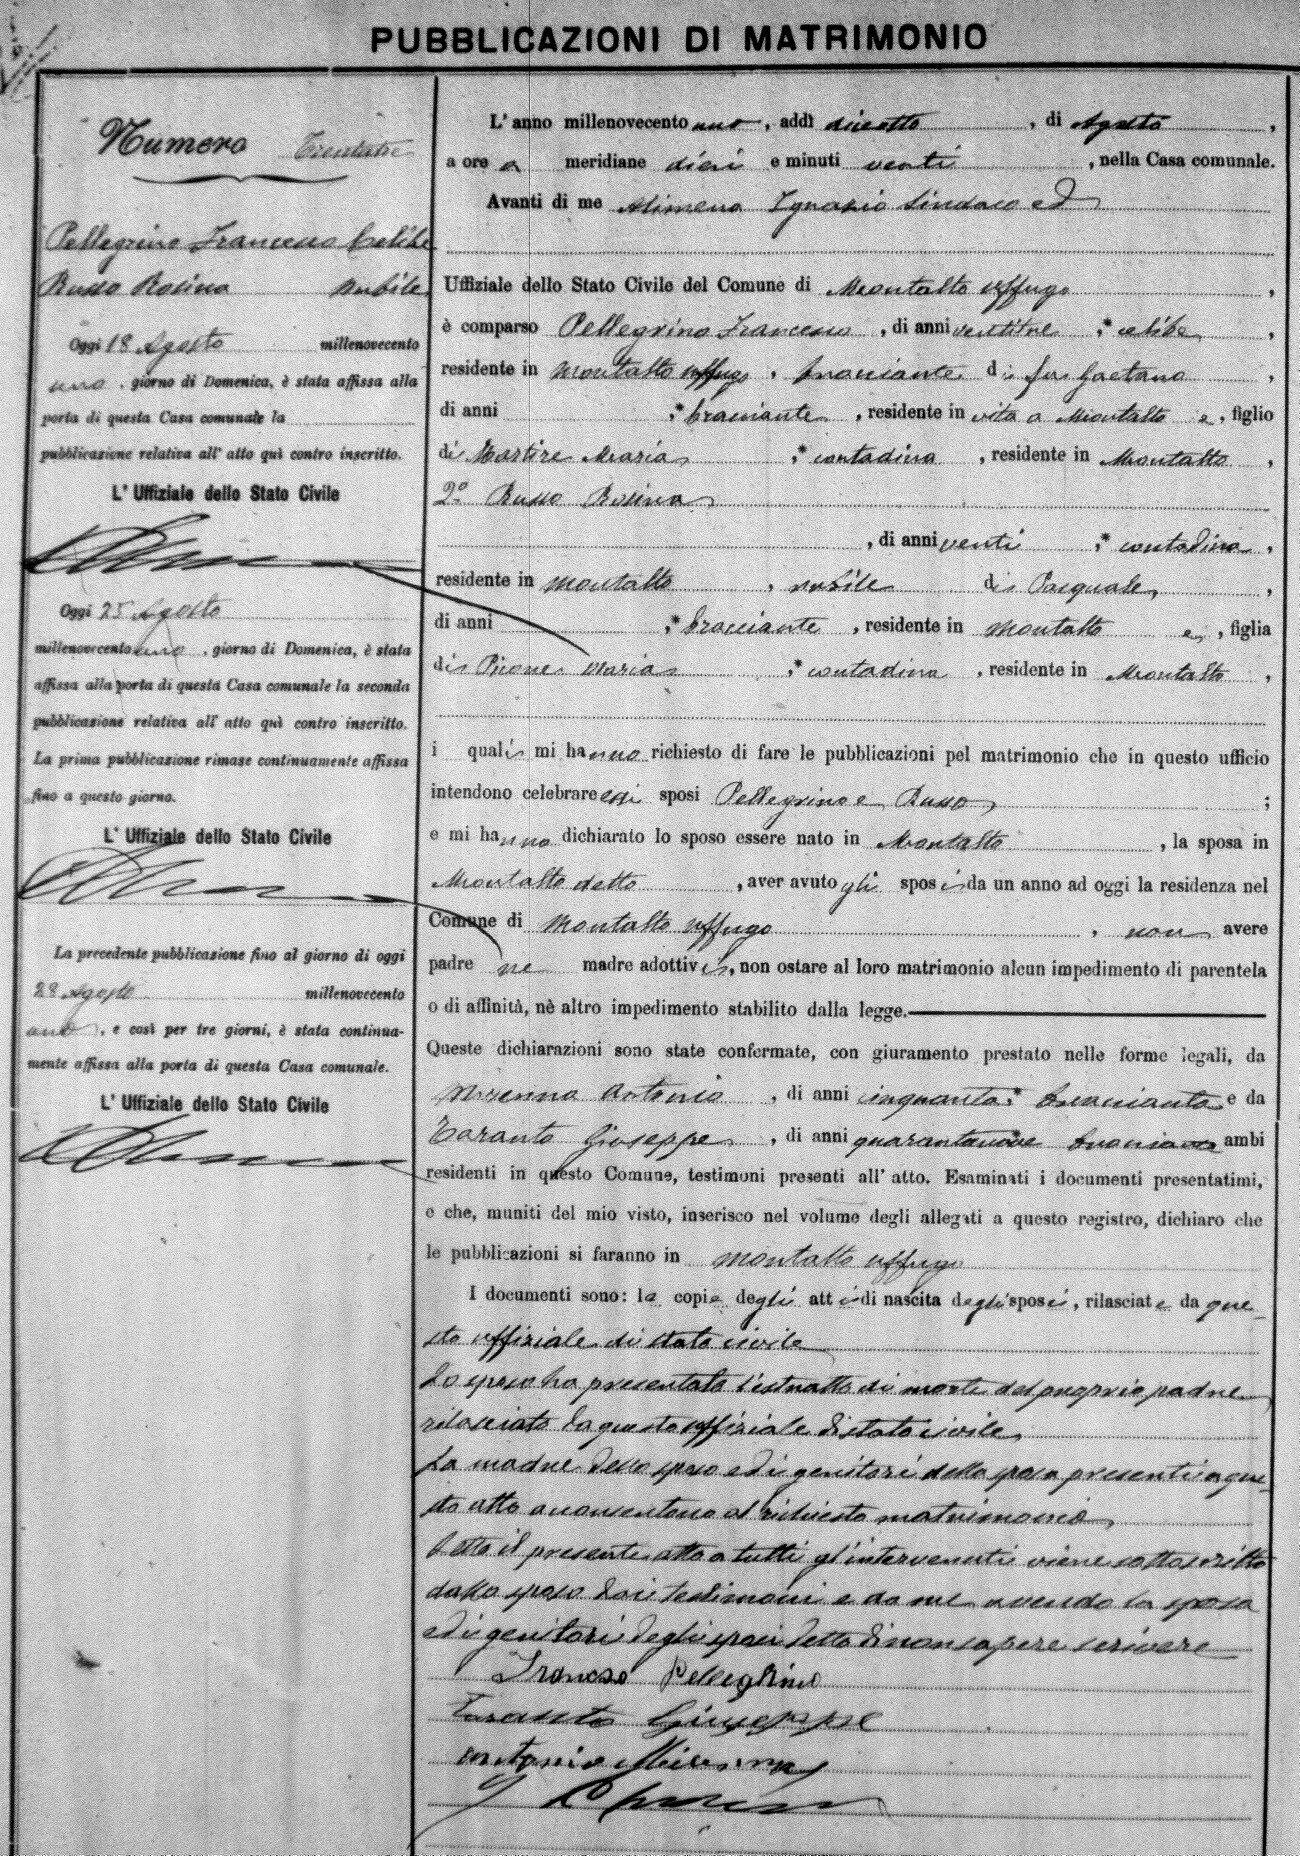 PUBBLICAZIONI DI MATRIMONIO
Numero Trentatre
Pellegrino Francesco Celibe
Russo Rosina Nubile
Oggi 18 Agosto millenovecento
uno, giorno di Domenica, è stata affissa alla
porta di questa Casa comunale la
pubblicazione relativa all' atto quì contro inscritto.
L' Uffiziale dello Stato Civile
Oggi 25 Agosto
millenovecento uno, giorno di Domenica, è stata
affissa alla porta di questa Casa comunale la seconda
pubblicazione relativa all' atto quì contro inscritto.
La prima pubblicazione rimase continuamente affissa
fino a questo giorno.
L' Uffiziale dello Stato Civile
La precedente pubblicazione fino al giorno di oggi
28 Agosto millenovecento
uno, e così per tre giorni, è stata continua-
mente affissa alla porta di questa Casa comunale.
L' Uffiziale dello Stato Civile
L' anno millenovecento uno, addì diciotto, di Agosto,
a ore a meridiane dieci e minuti venti, nella Casa comunale.
Avanti di me Alimena Ignazio Sindaco ed
Uffiziale dello Stato Civile del Comune di Montalto Uffugo,
è comparso Pellegrino Francesco, di anni ventitre, * celibe,
residente in Montalto Uffugo, bracciante di fu Gaetano,
di anni , * bracciante, residente in vita a Montalto e, figlio
di Martire Maria, * contadina, residente in Montalto,
2º Russo Rosina
, di anni venti, * contadina,
residente in Montalto, nubile di Pasquale,
di anni , * bracciante, residente in Montalto e, figlia
di Picone Maria, * contadina, residente in Montalto,
i quali mi hanno richiesto di fare le pubblicazioni pel matrimonio che in questo ufficio
intendono celebrare essi sposi Pellegrino e Russo;
e mi hanno dichiarato lo sposo essere nato in Montalto, la sposa in
Montalto detto, aver avuto gli sposi da un anno ad oggi la residenza nel
Comune di Montalto Uffugo, non avere
padre ne madre adottivi, non ostare al loro matrimonio alcun impedimento di parentela
o di affinità, nè altro impedimento stabilito dalla legge.
Queste dichiarazioni sono state confermate, con giuramento prestato nelle forme legali, da
Antonio, di anni cinquanta * bracciante e da
Taranto Giuseppe, di anni quarantanove bracciante ambi
residenti in questo Comune, testimoni presenti all' atto. Esaminati i documenti presentatimi,
e che, muniti del mio visto, inserisco nel volume degli allegati a questo registro, dichiaro che
le pubblicazioni si faranno in Montalto Uffugo
I documenti sono: le copie degli atti di nascita degli sposi, rilasciate da que-
sto uffiziale di stato civile
Lo sposo ha presentato l'estratto di morte del proprio padre
rilasciato da questo uffiziale di stato civile,
La madre dello sposo ed i genitori della sposa presenti a que-
sto atto acconsentono al richiesto matrimonio,
Letto il presente atto a tutti gl'intervenuti viene sottoscritto
dallo sposo dai testimoni e da me avendo la sposa
ed i genitori degli sposi detto di non sapere scrivere
Francesco Pellegrino
Taranto Giuseppe
Antonio